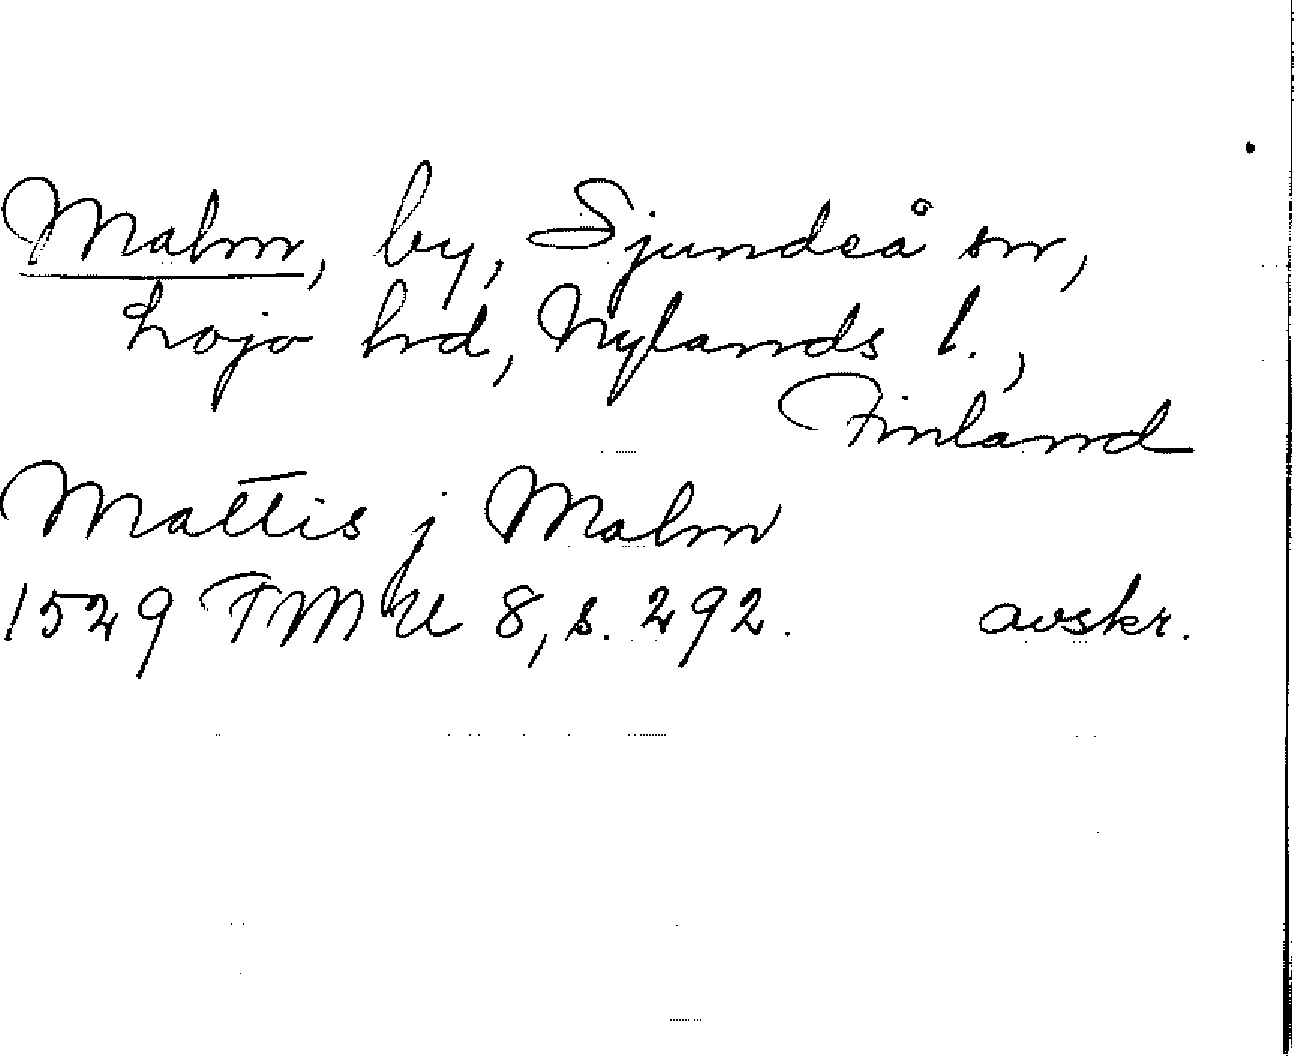 Malm, by, Sjundeå sn,
Lojo hrd, Nylands l.,
Finland
Mattis j Malm
1529 FMU 8, s. 292. avskr.